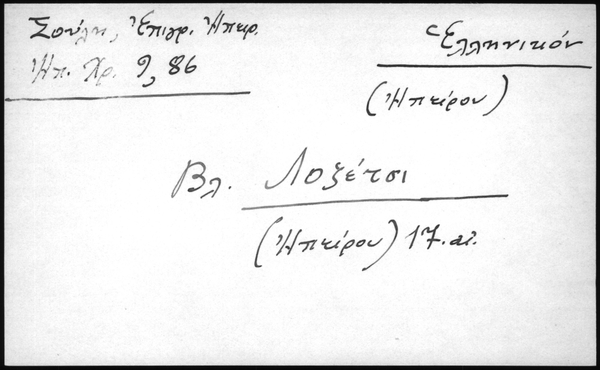 Σούλη, Ἐπιγρ. Ἠπειρ.
Ἠπ. Χρ. 9, 86
Ἑλληνικόν
(Ἠπείρου)
Βλ. Λοζέτσι
(Ἠπείρου) 17. αἰ.